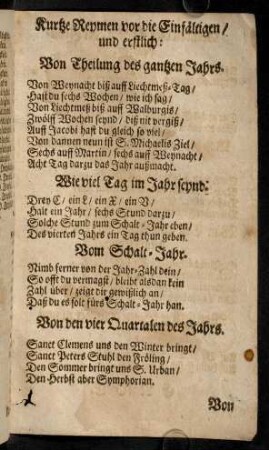 Kurtze Reymen vor die Einfältigen/
und erstlich:
Von Theilung des gantzen Jahrs.
Von Weynacht biß auff Liechtmeß-Tag/
Hast du sechs Wochen/ wie ich sag/
Von Liechtmeß biß auff Walburgis/
Zwölff Wochen seynd/ diß nit vergiß/
Auff Jacobi hast du gleich so viel/
Von dannen neun ist S. Michaelis Ziel/
Sechs auff Martin/ sechs auff Weynacht/
Acht Tag darzu das Jahr außmacht.
Wie viel Tag im Jahr seynd:
Drey C/ ein L/ ein X/ ein V/
Halt ein Jahr/ sechs Stund darzu/
Solche Stund zum Schalt-Jahr eben/
Des viertes Jahrs ein Tag thun geben.
Vom Schalt-Jahr.
Nimb ferner von der Jahr-Zahl dein/
So offt du vermagst/ bleibt alsdan kein
Zahl über/ zeigt dir gewißlich an/
Daß du es solt fürs Schalt-Jahr han.
Von den vier Quartalen des Jahrs.
Sanct Clemens uns den Winter bringt/
Sanct Peters Stuhl den Fröling/
Den Sommer bringt uns S. Urban/
Den Herbst aber Symphorian.
Von